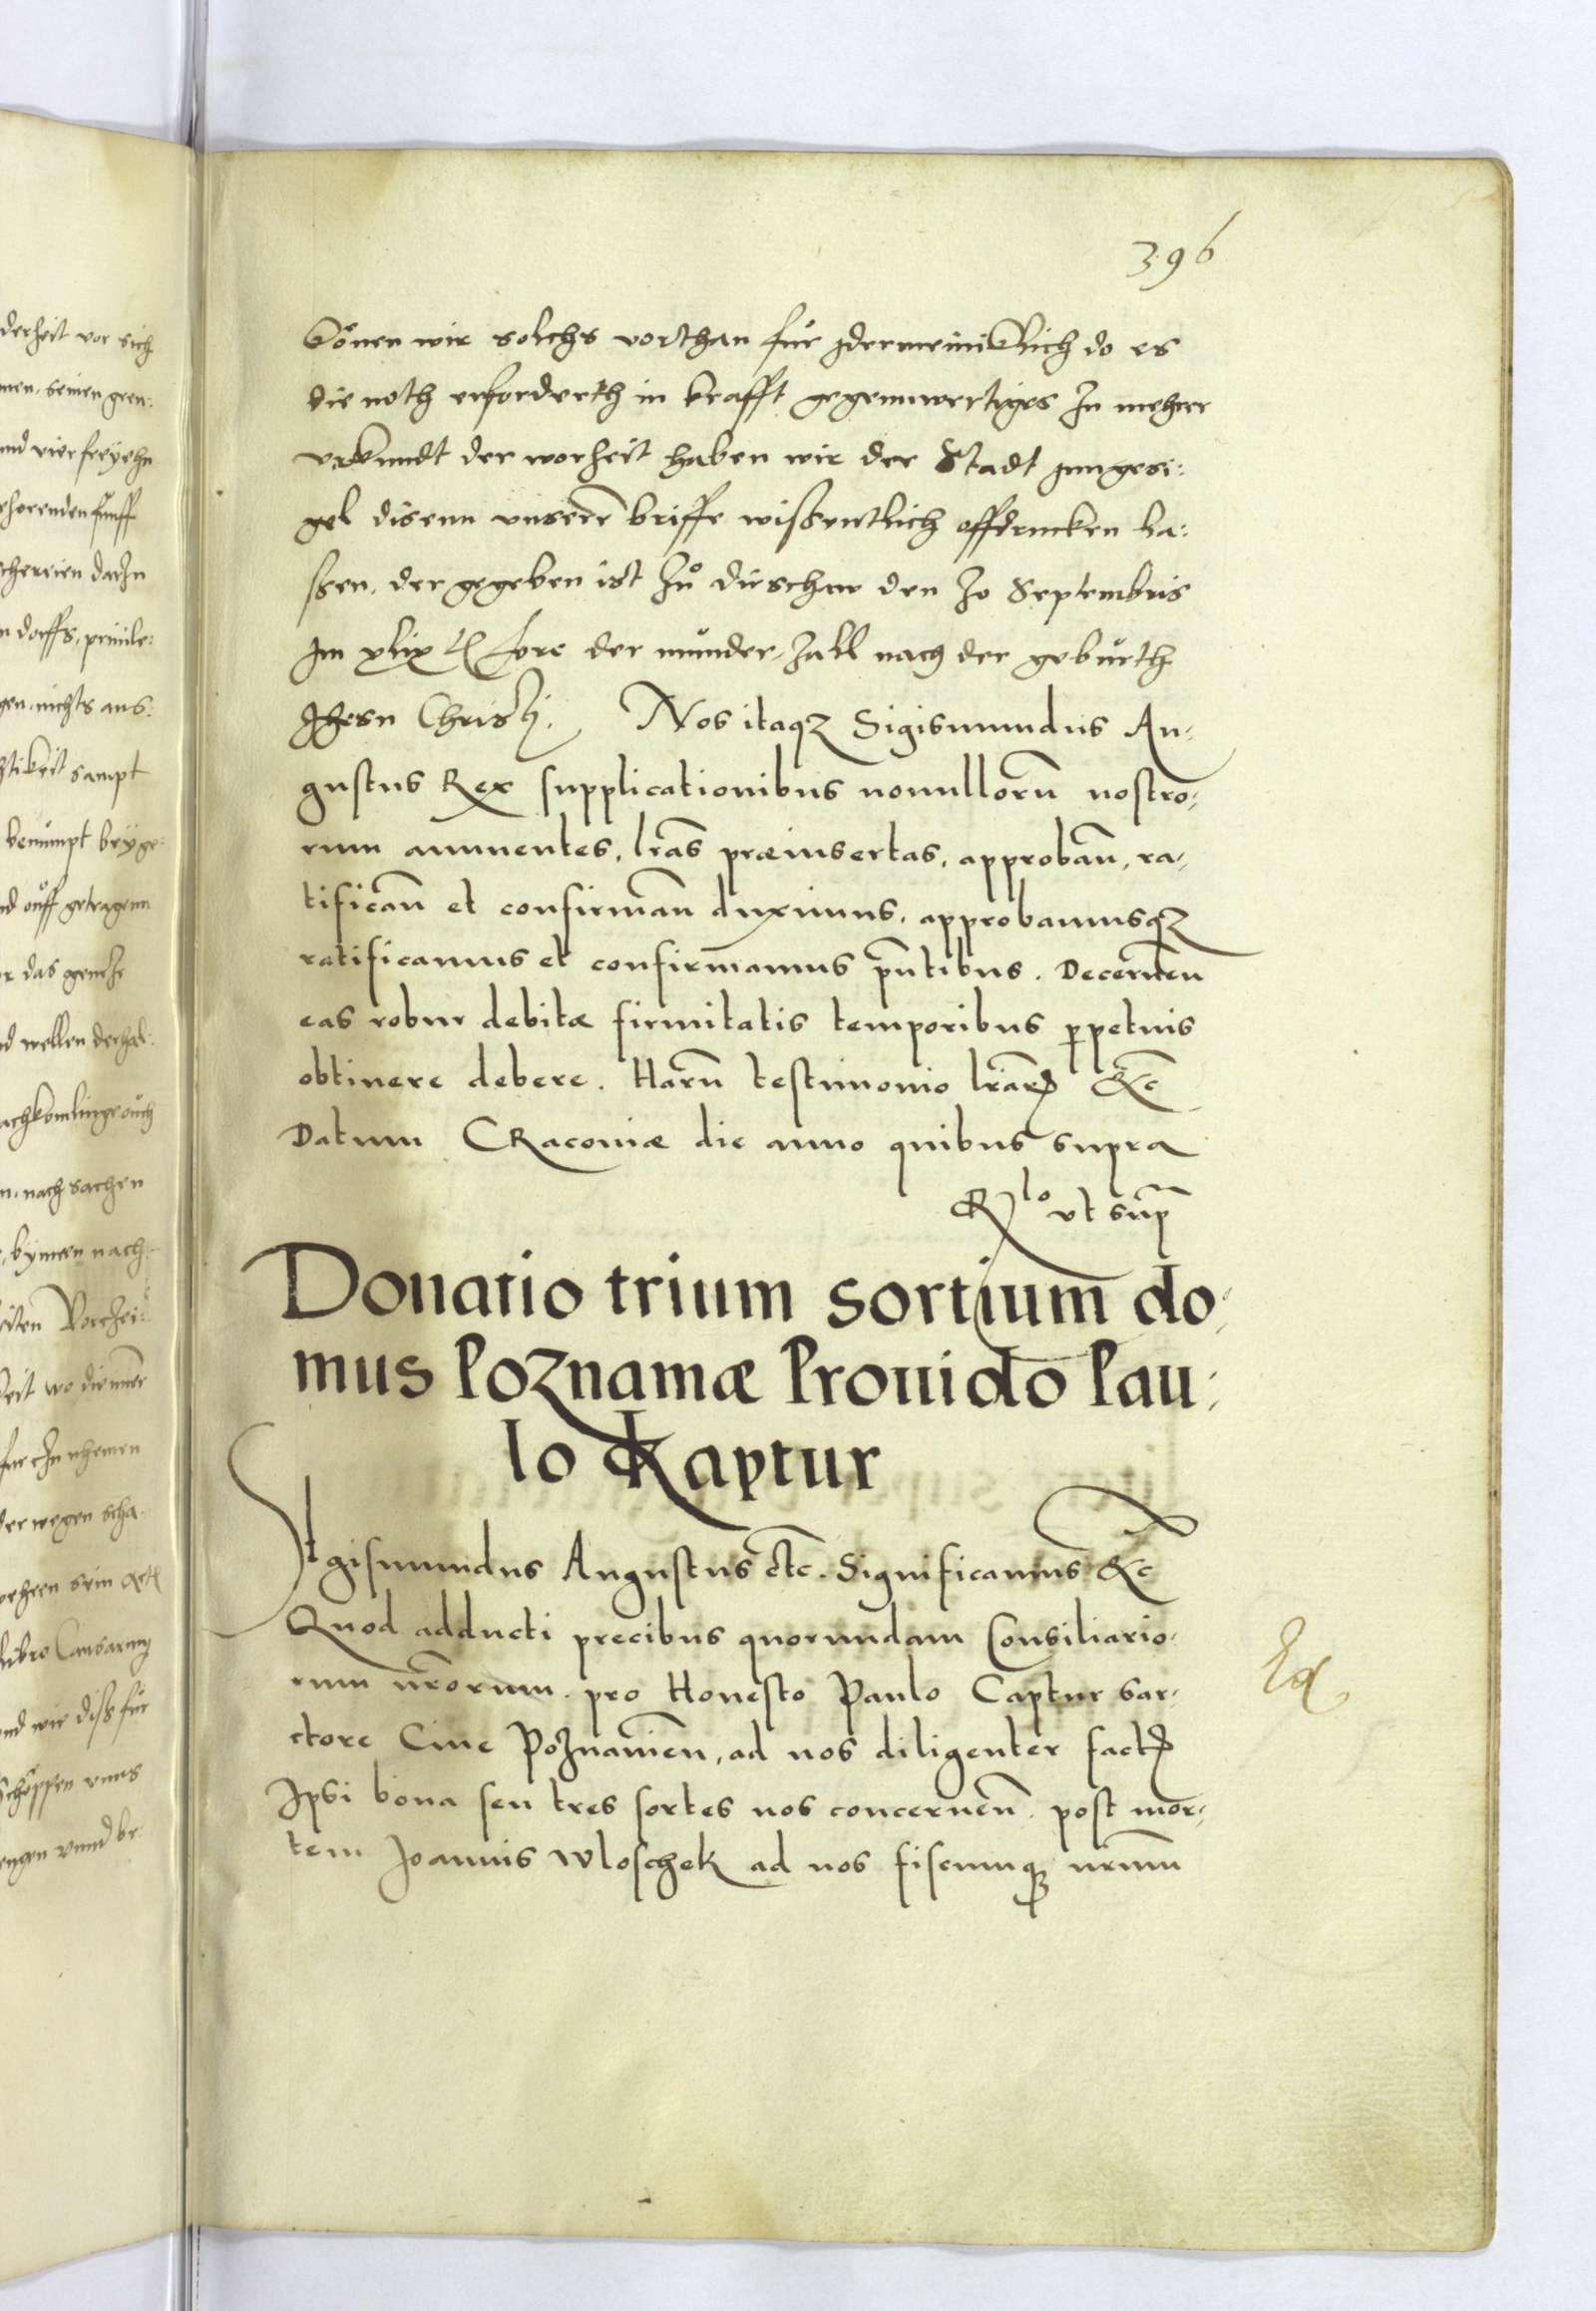 396
könen wir solchs vorthan für Jdermeniklich do es
die noth erforderth in krafft gegennwertiges Zu meherr
vrkundt der worheit haben wir der Stadt Jnngesi:
gel disenn vnserē briffe wißentlich offdrucken la:
ßen, der gegeben ist Zů dirschaw den Zo Septembris
Jm xlix Jore der münder Zall nach der gebürth
Jhesu Christj. Nos itaqꝫ Sigismundus Au-
gustus Rex supplicationibus nonnullorū nostro-
rum annuentes, lr̄as præinsertas, approbān, ra-
tificān et confirmān duximus, approbamusqꝫ
ratificamus et confirmamus pn̄tibus. Decernen̄
eas robur debitæ firmitatis temporibus ꝑpetuis
obtinere debere. Harū testimonio lr̄arꝝ &c̄
Datum CRacouiæ die anno quibus supra
Rlo vt sup̄
Donatio trium sortium do-
mus Poznaniæ Prouido Pau-
lo Kaptur
SIgismundus Augustus etc. Significamus &c̄
Quod adducti precibus quorundam Consiliario-
rum nr̄orum pro Honesto Paulo Captur sar-
ctore Ciue Poznanien̄, ad nos diligenter factꝭ
Jpsi bona seu tres sortes nos concernen̄. post mor-
tem Joannis Wloschek ad nos fiscumqꝫ nr̄um
derheit vor sich
nd vier freyehn
dorffs, priuile:
gen, nichts aus:
tikeit sampt
benümpt beyge:
nd ouff getragenn
r das gencze
nd wellen derhal:
achkomlinge ouch
n, nach sachen
der wegen scha:
libro Causarum
nd wir diß für
Schöppen vnns
engen vnnd be: